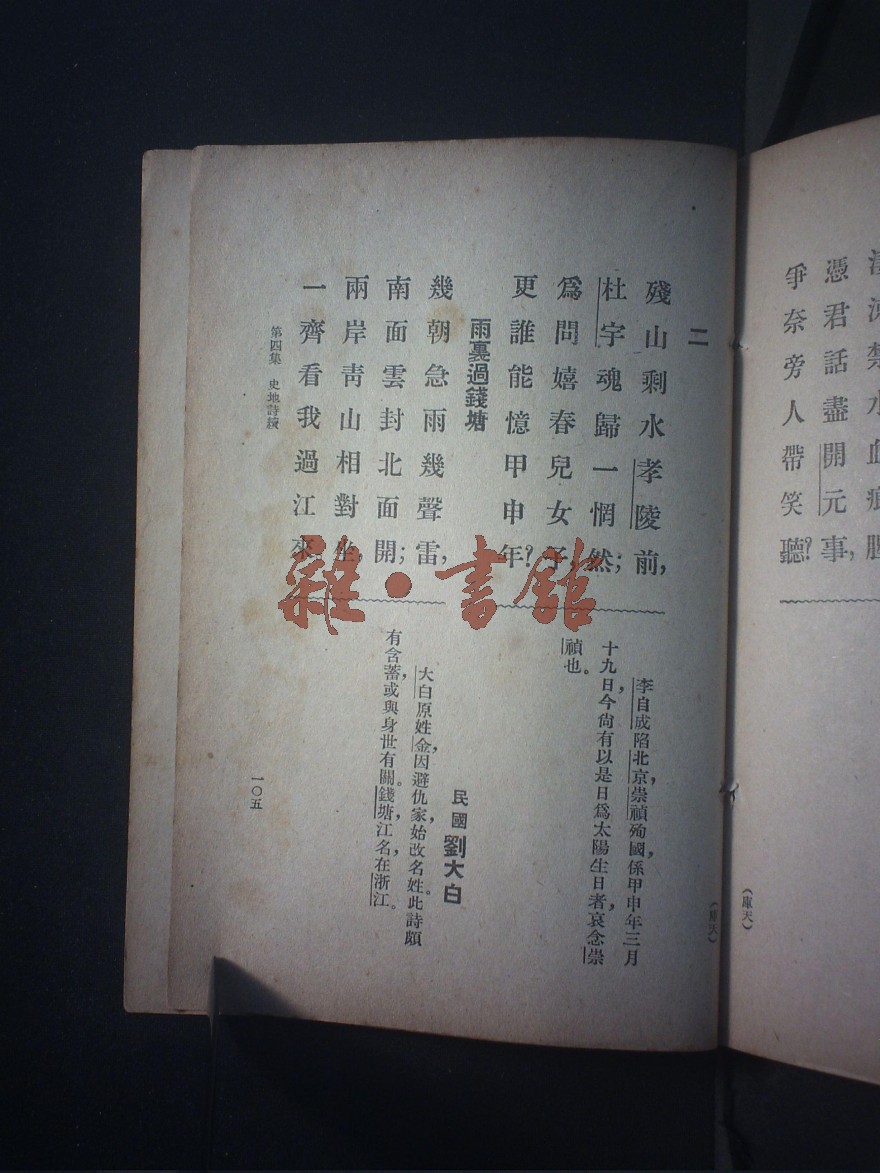 憑君話盡開元事，
爭奈旁人帶笑聽？
（庫天）
二
殘山剩水孝陵前，
杜宇魂歸一惘然；
爲問嬉春兒女子，
更誰能憶甲申年？
李自成陷北京，崇禎殉國，係甲申年三月
十九日，今尙有以是日爲太陽生日者，哀念崇
禎也。
（庫天）
雨裏過錢塘
民國 劉大白
幾朝急雨幾聲雷，
南面雲封北面開；
兩岸靑山相對坐，
一齊看我過江來。
大白原姓金，因避仇家，始改名姓。此詩頗
有含蓄，或與身世有關。錢塘，江名，在浙江。
第四集 史地詩續
一〇五
雜·書館